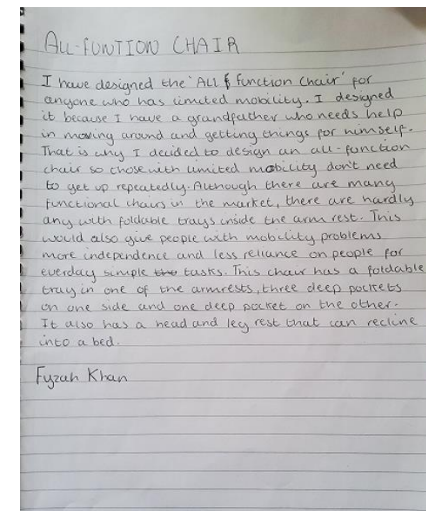 ALL-FUNTION CHAIR
I have designed the 'ALL function Chair' for
anyone who has limited mobility. I designed
it because I have a grandfather who needs help
in moving around and getting things for himself.
That is why I decided to design an all-function
chair so those with limited mobility don't need
to get up repeatedly. Although there are many
functional chairs in the market, there are hardly
any with foldable trays inside the arm rest. This
would also give people with mobility problems
more independence and less reliance on people for
everday simple tasks. This chair has a foldable
tray in one of the armrests, three deep pockets
on one side and one deep pocket on the other.
It also has a head and leg rest that can recline
into a bed.
Fyzah Khan